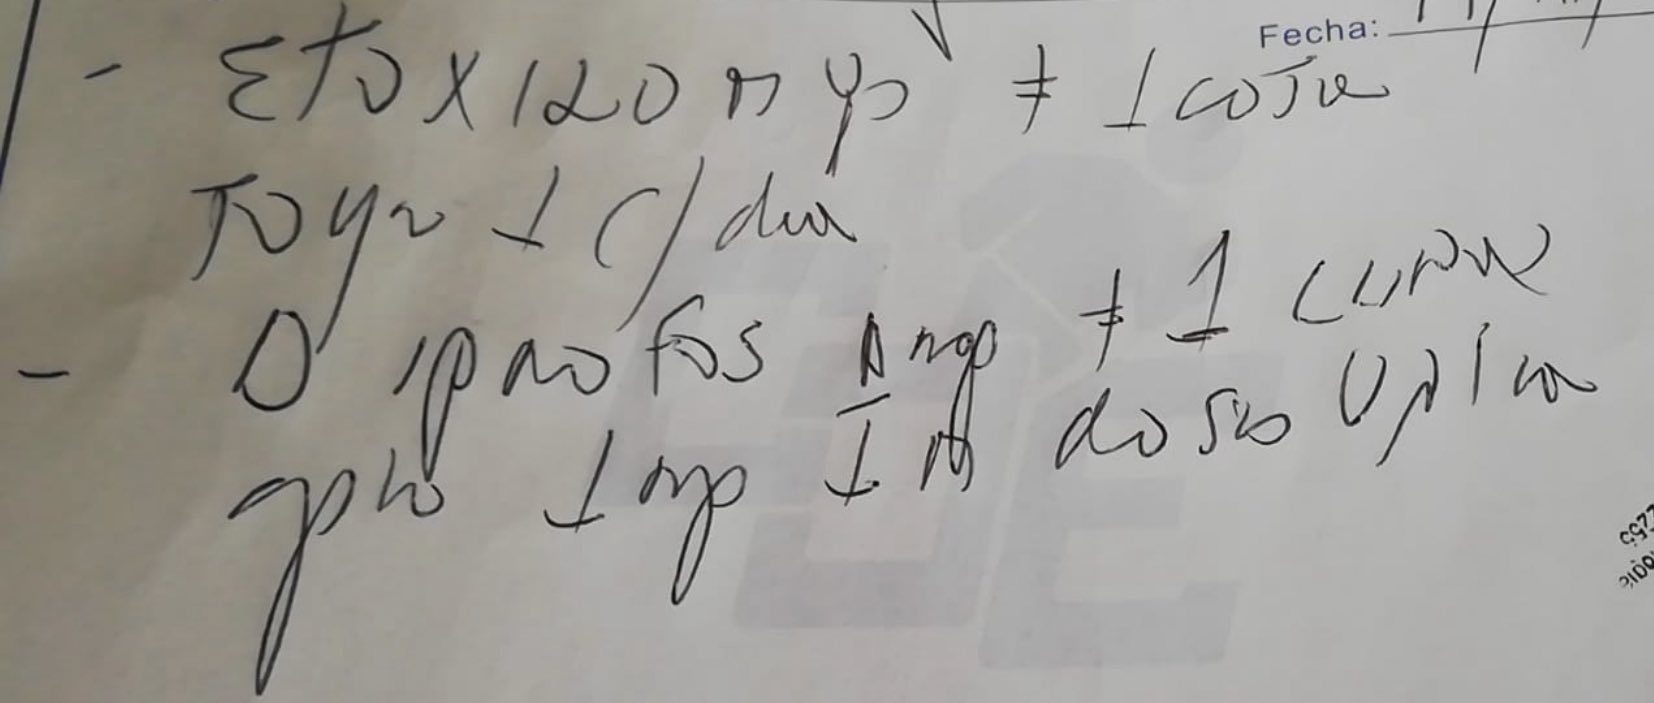 Fecha:
- Eto x 120 mgs # 1 caja
Toma 1 c/dia
- Diprofos Amp # 1
aplic 1 amp IM dosis Unica